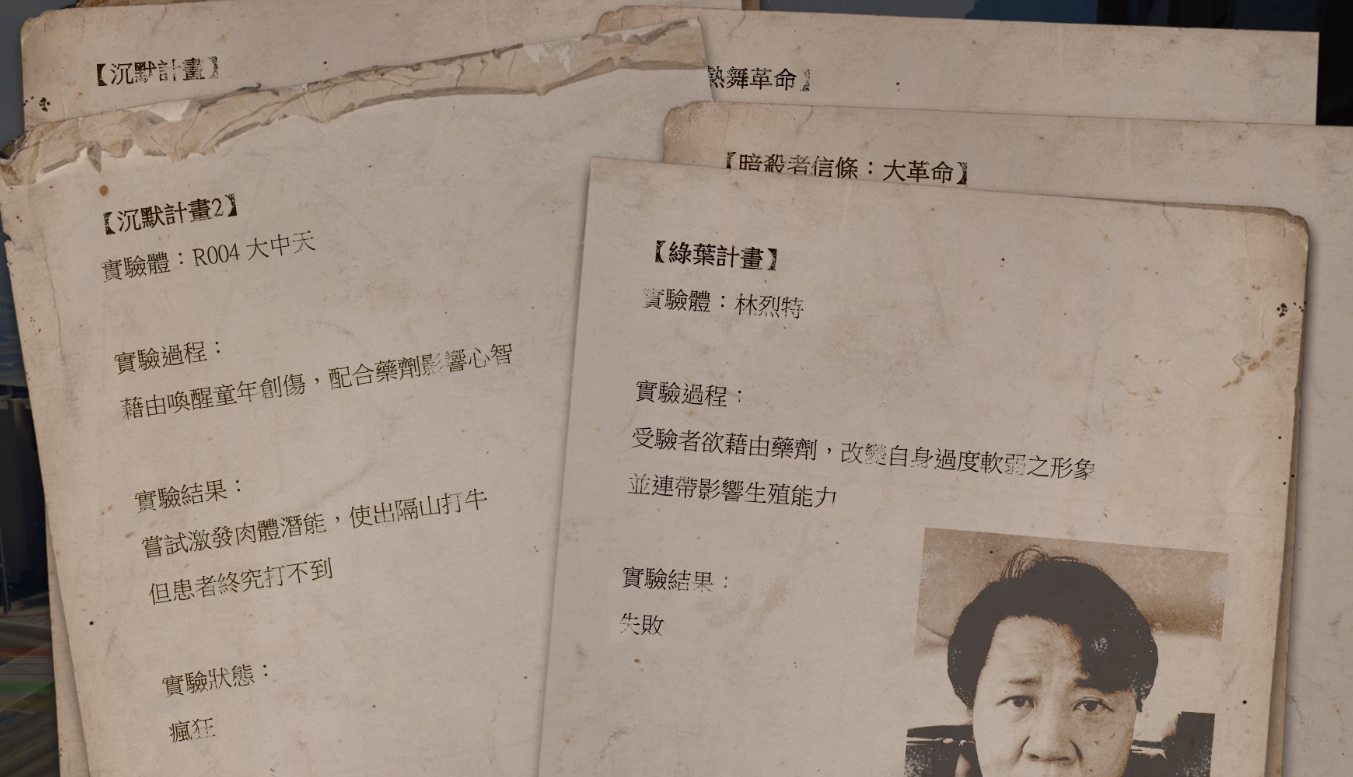 【沉默計畫】
【沉默計畫2】
實驗體：R004 大中天
實驗過程：
藉由喚醒童年創傷，配合藥劑影響心智
實驗結果：
嘗試激發肉體潛能，使出隔山打牛
但患者終究打不到
實驗狀態：
瘋狂
熱舞革命】
【暗殺者信條：大革命】
【綠葉計畫】
實驗體：林烈特
實驗過程：
受驗者欲藉由藥劑，改變自身過度軟弱之形象
並連帶影響生殖能力
實驗結果：
失敗